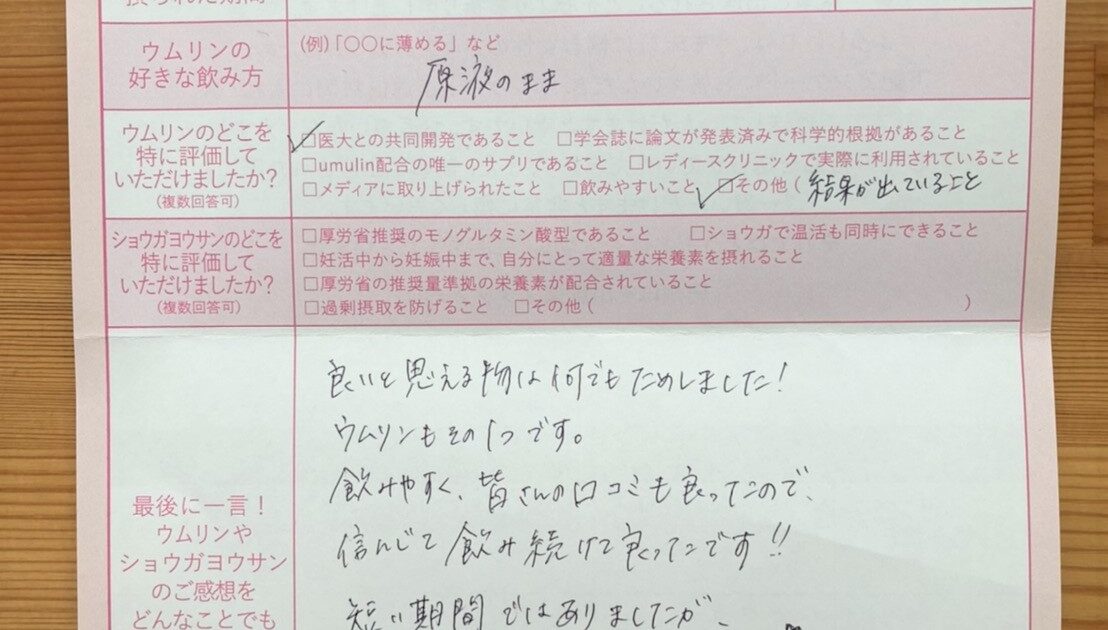 ウムリンの
好きな飲み方
(例)「〇〇に薄める」など
原液のまま
ウムリンのどこを
特に評価して
いただけましたか?
(複数回答可)
□医大との共同開発であること □学会誌に論文が発表済みで科学的根拠があること
□umulin配合の唯一のサプリであること □レディースクリニックで実際に利用されていること
□メディアに取り上げられたこと □飲みやすいこと □その他( 結果が出ていること
ショウガヨウサンのどこを
特に評価して
いただけましたか?
(複数回答可)
□厚労省推奨のモノグルタミン酸型であること □ショウガで温活も同時にできること
□妊活中から妊娠中まで、自分にとって適量な栄養素を摂れること
□厚労省の推奨量準拠の栄養素が配合されていること
□過剰摂取を防げること □その他( )
最後に一言!
ウムリンや
ショウガヨウサン
のご感想を
どんなことでも
良いと思える物は何でもためしました!
ウムリンもその1つです。
飲みやすく、皆さんの口コミも良かったので、
信んじて飲み続けて良かったです!!
短い期間ではありましたが、